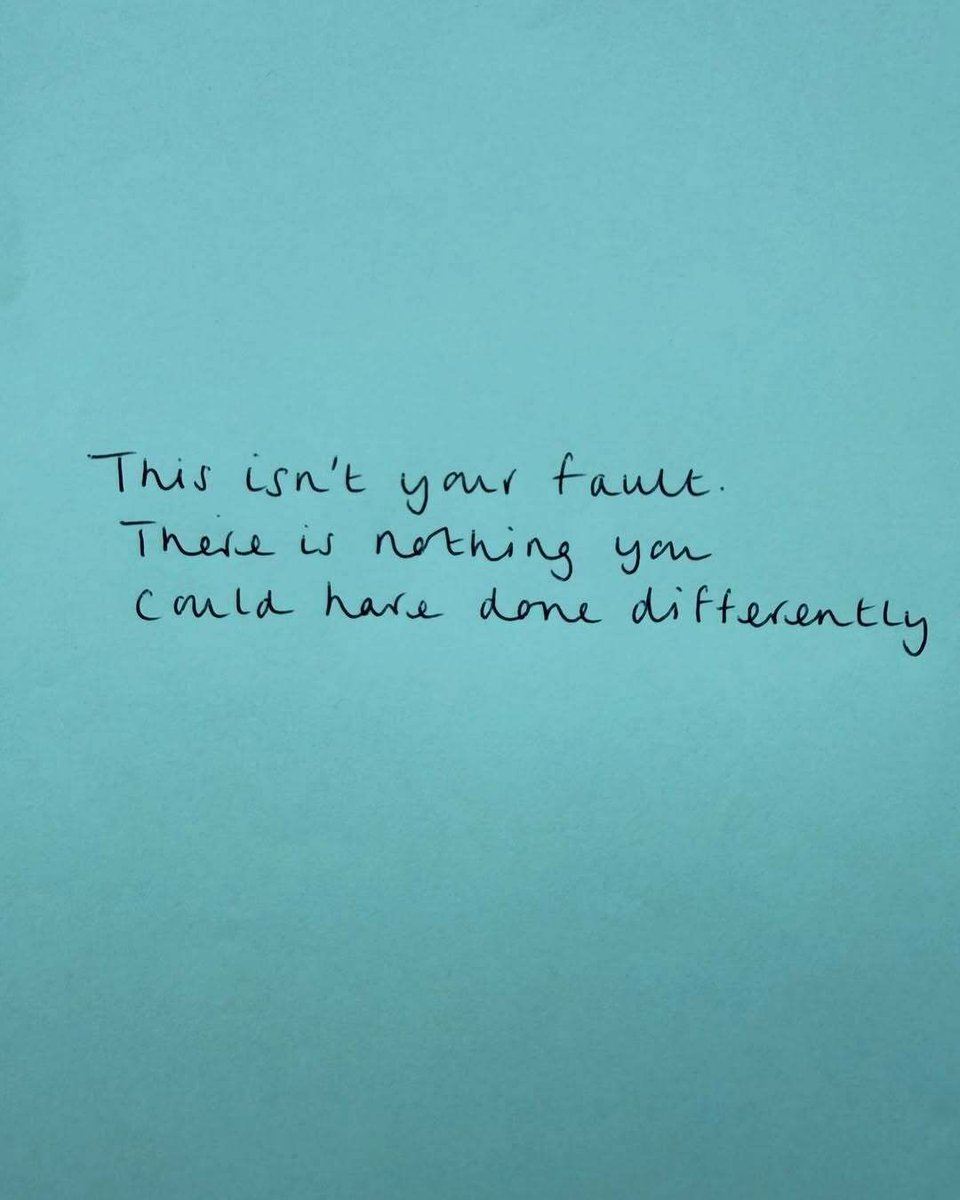 This isn't your fault.
There is nothing you
could have done differently